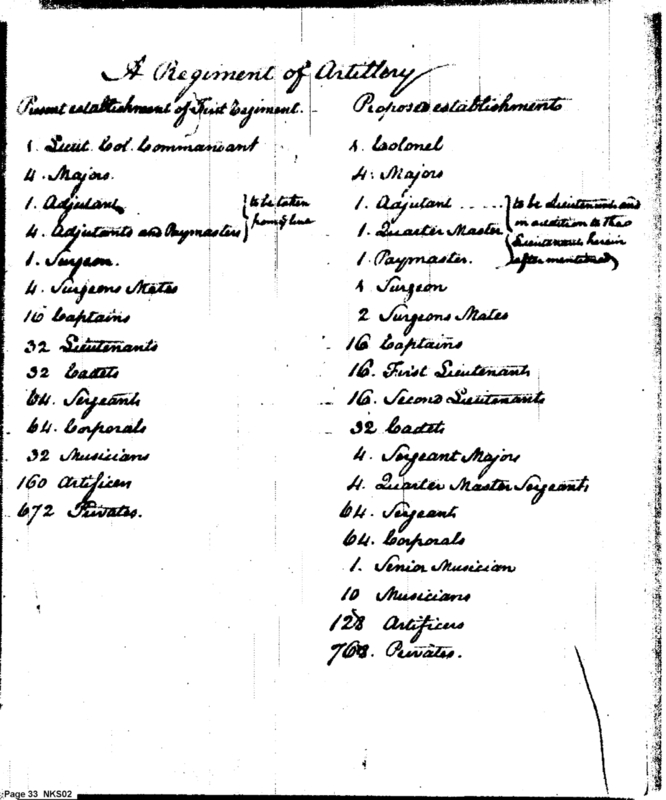 A Regiment of Artillery
Present establishment of First Regiment.
1. Lieut. Col. Commandant
4. Majors.
1. Adjutant
4. Adjutants and Paymasters } to be taken
from line
1. Surgeon.
4. Surgeons Mates
16 Captains
32 Lieutenants
32 Cadets
64. Sergeants
64. Corporals
32 Musicians
160 Artificers
672 Privates.
Proposed establishment
1. Colonel
4. Majors
1. Adjutant .... } to be Lieutenants and
1. Quarter Master } in addition to the
1. Paymaster. } Lieutenants herein
after mentioned
1 Surgeon
2 Surgeons Mates
16 Captains
16. First Lieutenants
16. Second Lieutenants
32 Cadets
4. Sergeant Majors
4. Quarter Master Sergeants
64. Sergeants
64. Corporals
1. Senior Musician
10 Musicians
128 Artificers
768. Privates.
Page 33 NKS02